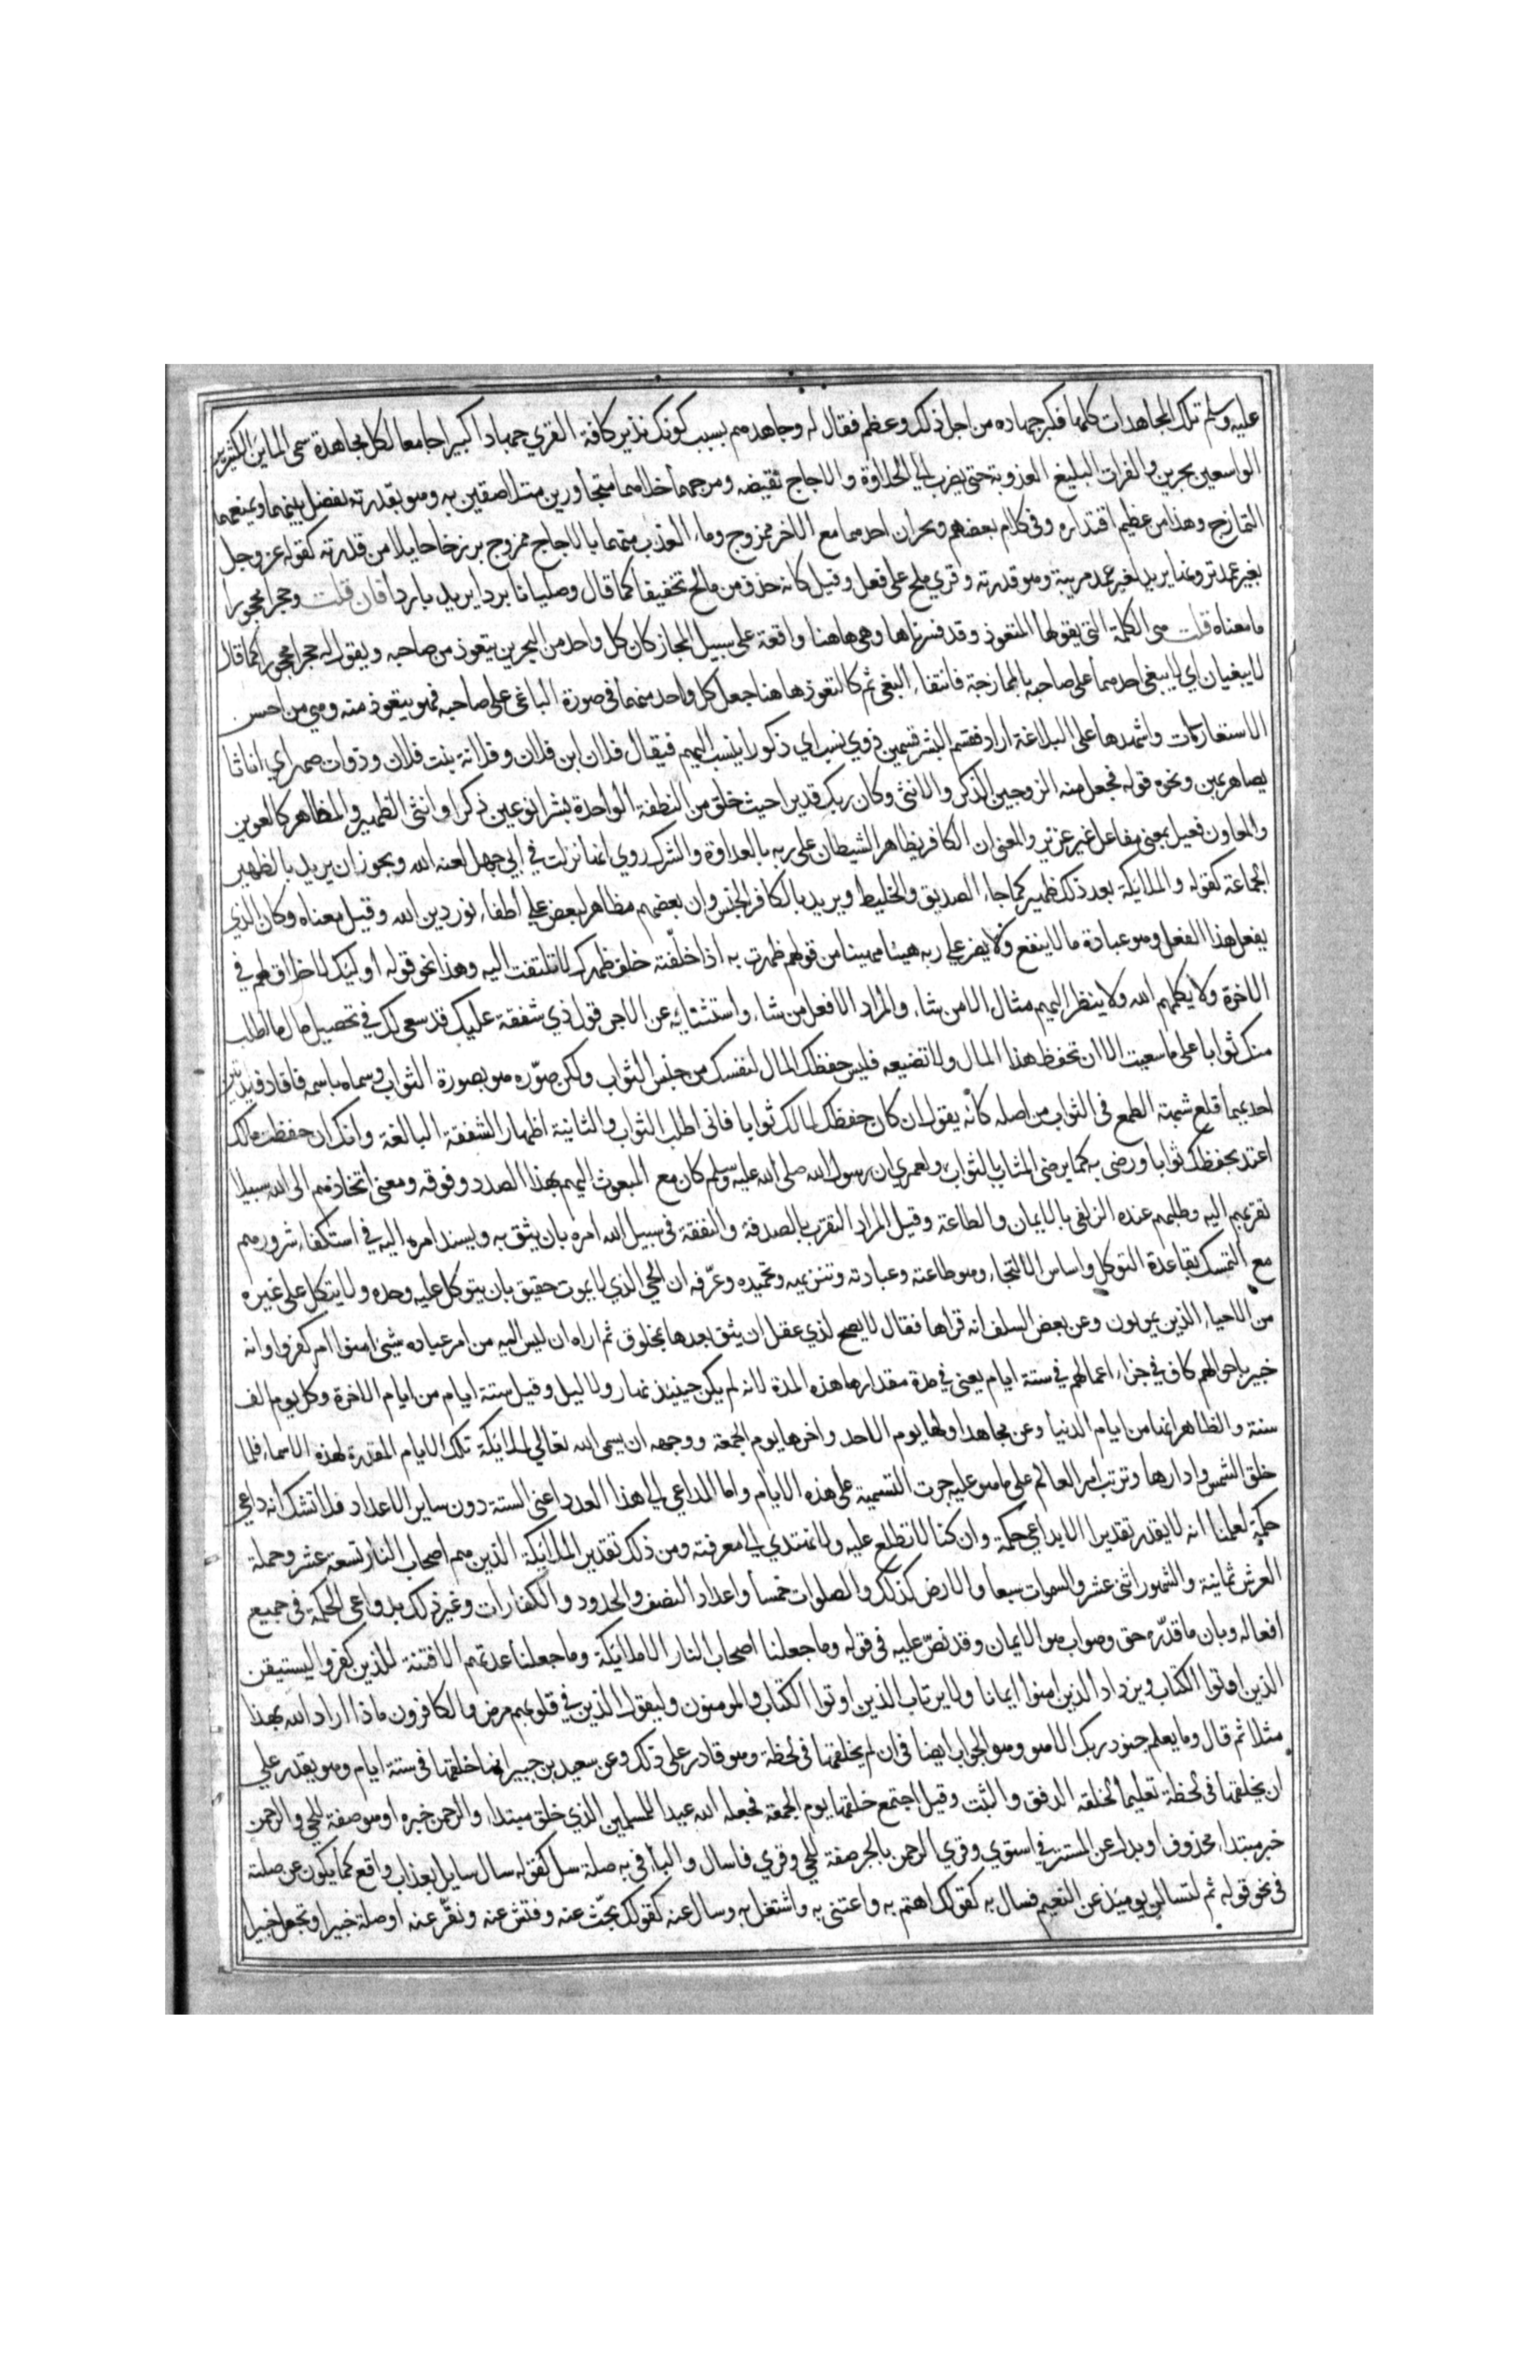 عليه وسلم تلك المجاهدات كلها فكبر جهاده من اجل ذلك وعظم فقال له وجاهدهم بسبب كونك نذير كافة القري جهادا كبيرا جامعا لكل مجاهدة سمى المائين الكثيرين
الواسعين بحرين والفرات البليغ العذوبة حتى يضرب الي الحلاوة والاجاج نقيضه ومرجهما خلاهما متجاورين متلاصقين به وهو بقدرته يفصل بينهما ويمنعهما
التمازج وهذا من عظيم اقتداره وفى كلام بعضهم وبحران احدهما مع الاخر ممزوج وماء العذب منهما بالاجاج ممزوج برزخا حايلا من قدرته كقوله عز وجل
بغير عمد ترونها يريد بغير عمد مريية وهو قدرته وقري ملح على فعل وقيل كانه حذف من مالح تخفيفا كما قال وصليانا بردا يريد باردا فان قلت وحجرا محجورا
ما معناه قلت هى الكلمة التى يقولها المتعوذ وقد فسرناها وهى هاهنا واقعة على سبيل المجاز كان كل واحد من البحرين يتعوذ من صاحبه ويقول له حجرا محجورا كما قال
لا يبغيان اي لا يبغى احدهما على صاحبه بالممازجة فانتفاء البغى ثم كالتعوذ هاهنا جعل كل واحد منهما فى صورة الباغى على صاحبه فهو يتعوذ منه وهى من احسن
الاستعارات واشهدها على البلاغة اراد فقسم البشر قسمين ذوي نسب اي ذكورا ينسب اليهم فيقال فلان ابن فلان وفلانة بنت فلان وذوات صهر اي اناثا
يصاهر بهن ونحوه قوله فجعل منه الزوجين الذكر والانثى وكان ربك قديرا حيث خلق من النطفة الواحدة بشرا نوعين ذكرا وانثى الظهير والمظاهر كالعوين
والمعاون فعيل بمعنى مفاعل غير عزيز والمعنى ان الكافر يظاهر الشيطان على ربه بالعداوة والشرك روي انها نزلت في ابي جهل لعنه الله ويجوز ان يريد بالظهير
الجماعة كقوله والملائكة بعد ذلك ظهير كما جاء الصديق والخليط ويريد بالكافر الجنس وان بعضهم مظاهر لبعض على اطفاء نور دين الله وقيل معناه وكان الذي
يفعل هذا الفعل وهو عبادة ما لا ينفع ولا يضر علي ربه هينا مهينا من قولهم ظهرت به اذا خلفته خلف ظهرك لا تلتفت اليه وهذا نحو قوله اوليك لا خلاق لهم في
الاخرة ولا يكلمهم الله ولا ينظر اليهم مثال الا من شاء والمراد الا فعل من شاء واستثنايه عن الاجر قول ذي شفقة عليك قد سعى لك في تحصيل مال ما اطلب
منك ثوابا على ما سعيت الا ان تحفظ هذا المال ولا تضيعه فليس حفظك المال لنفسك من جنس الثواب ولكن صوّره هو بصورة الثواب وسماه باسمه فافاد فيدتين
احديهما قلع شبهة الطمع فى الثواب من اصله كأنه يقول ان كان حفظك لمالك ثوابا فانى اطلب الثواب والثانية اظهار الشفقة البالغة وانك ان حفظت مالك
اعتد بحفظك ثوابا ورضى به كما يرضى المثاب بالثواب ولعمري ان رسول الله صلى الله عليه وسلم كان مع المبعوث اليهم بهذا الصدد وفوقه ومعنى اتخاذهم الى الله سبيلا
تقربهم اليه وطلبهم عنده الزلفى بالايمان والطاعة وقيل المراد التقرب بالصدقة والنفقة فى سبيل الله امره بان يثق به ويسند امره اليه في استكفاء شرورهم
مع التمسك بقاعدة التوكل واساس الالتجاء وهو طاعته وعبادته وتنزيهه وتحميده وعرّفه ان الحي الذي لا يموت حقيق بان يتوكل عليه وحده ولا يتكل على غيره
من الاحياء الذين يموتون وعن بعض السلف انه قراها فقال لا يصح لذي عقل ان يثق بعدها بمخلوق ثم اراه ان ليس اليه من امر عباده شىء امنوا ام كفروا وانه
خبير باحوالهم كاف في جزاء اعمالهم في ستة ايام يعنى في مدة مقدارها هذه المدة لانه لم يكن حينيذ نهار ولا ليل وقيل ستة ايام من ايام الاخرة وكل يوم الف
سنة والظاهر انها من ايام الدنيا وعن مجاهد اولها يوم الاحد واخرها يوم الجمعة ووجهه ان يسمى الله تعالي لملائكة تلك الايام المقدرة لهذه الاسماء فلما
خلق الشمس وادارها وترتب امر العالم على ما هو عليه جرت التسمية على هذه الايام واما الداعي لى هذا العدد اعنى الستة دون ساير الاعداد فلا تشك انه داعى
حكمة لعلمنا انه لا يقدر تقديرا الا بداعي حكمة وان كنا لا نطلع عليه ولا نهتدي الي معرفته ومن ذلك تقدير الملائكة الذين هم اصحاب النار تسعة عشر وحملة
العرش ثمانية والشهور اثنى عشر والسموات سبعا والارض كذلك والصلوات خمسا واعداد النصب والحدود والكفارات وغير ذلك بدواعى الحكمة فى جميع
افعاله وبان ما قدّره حق وصواب هو الايمان وقد نصّ عليه فى قوله وما جعلنا اصحاب النار الا ملائكة وما جعلنا عدتهم الا فتنة للذين كفروا ليستيقن
الذين اوتوا الكتاب ويزداد الذين امنوا ايمانا ولا يرتاب الذين اوتوا الكتاب والمومنون وليقول الذين في قلوبهم مرض والكافرون ماذا اراد الله بهذا
مثلا ثم قال وما يعلم جنود ربك الا هو وهو الجواب ايضا فى ان لم يخلقها فى لحظة وهو قادر على ذلك وعن سعيد بن جبير انها خلقها فى ستة ايام وهو يقدر علي
ان يخلقها فى لحظة تعليما لخلقه الرفق والتثبت وقيل اجتمع خلقها يوم الجمعة فجعله الله عيدا للمسلمين الذي خلق مبتداء والرحمن خبره او هو صفة للحي والرحمن
خبر مبتداء محذوف او بدل عن المستتر في استوي وقري الرحمن بالجر صفة للحي وقري فاسال والباء فى به صلة سل كقوله سال سايل بعذاب واقع كما يكون عن صلته
فى نحو قوله ثم لتسالن يوميذ عن النعيم فسال به كقولك اهتم به واعتنى به واشتغل به وسال عنه كقولك بحّث عنه وفتش عنه ونقّر عنه او صلة خبيرا وتجعل خبيرا